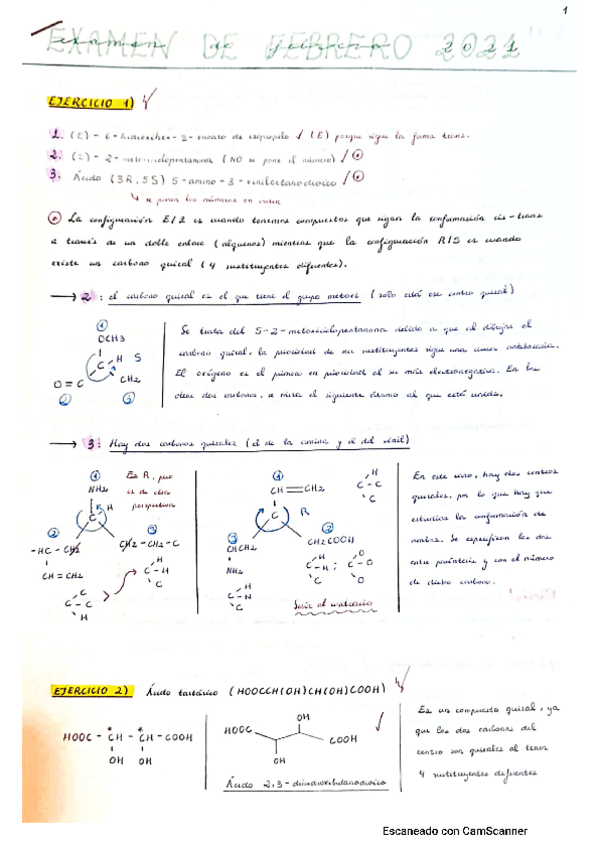 1
EXAMEN DE FEBRERO 2021
EJERCICIO 1)
1. (E) - 6 - - 3 - de isopropilo (E) porque sigue la forma trans.
2. (S) - 2 - metoxiciclopentanona (NO se pone el número)
3. Ácido (3R, 5S) 5-amino-3-vinil
se ponen los números en orden
La configuración E/Z es cuando tenemos compuestos que sigan la conformación cis-trans
a través de un doble enlace (alquenos) mientras que la configuración R/S es cuando
existe un carbono quiral (4 sustituyentes diferentes).
2: el carbono quiral es el que tiene el grupo metoxi (solo está ese centro quiral)
1
OCH3
C H S
O = C CH2
2 3
Se trata del S-2-metoxiciclopentanona debido a que al dibujar el
carbono quiral, la prioridad de sus sustituyentes sigue una
El oxígeno es el primero en prioridad al ser más electronegativo. En los
otros dos carbonos, se mira el siguiente átomo al que está unido.
3: Hay dos carbonos quirales (el de la amina y el del vinil)
1
NH2
C H
Es R, pero
es de otra
perspectiva
2
-HC - CH2
CH = CH2
3
CH2 - CH2 - C
H
C - H
C
H
C - C
C H
1
CH = CH2
H
C - C
C
C R
3
CHCH2
NH2
2
CH2COOH
H
C - H
C
O
C - O
O
H
C - N
C
Sería al contrario
En este caso, hay dos centros
quirales, por lo que hay que
estudiar la conformación de
ambos. Se especifican los dos
entre paréntesis y con el número
de dicho carbono.
EJERCICIO 2) Ácido tartárico (HOOCCH(OH)CH(OH)COOH)
HOOC - CH - CH - COOH
* *
OH OH
OH
HOOC
COOH
OH
Ácido 2,3-dihidroxibutanodioico
Es un compuesto quiral, ya
que los dos carbonos del
centro son quirales al tener
4 sustituyentes diferentes
Escaneado con CamScanner